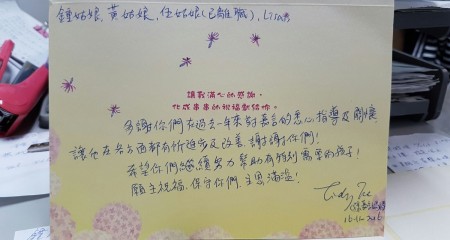 鍾姑娘, 黃姑娘, 任姑娘(已離職), Lisa
讓我滿心的感謝,
化成串串的祝福獻給你。
多謝你們在過去一年來對嘉言的悉心指導及關懷
讓他在各方面都有所進步及改善, 謝謝你們!
希望你們繼續努力幫助有特別需要的孩子!
願主祝福、保守你們, 主恩滿溢!